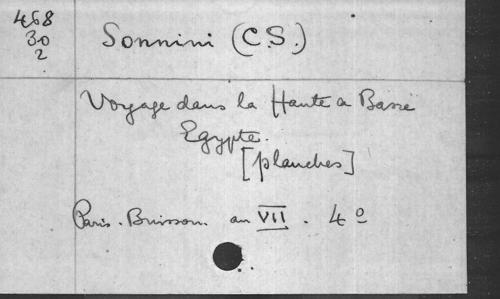 468
30
2
Sonnini (C.S.)
Voyage dans la Haute a Basse
Egypte.
[planches]
Paris. Buisson. an VII. 4º